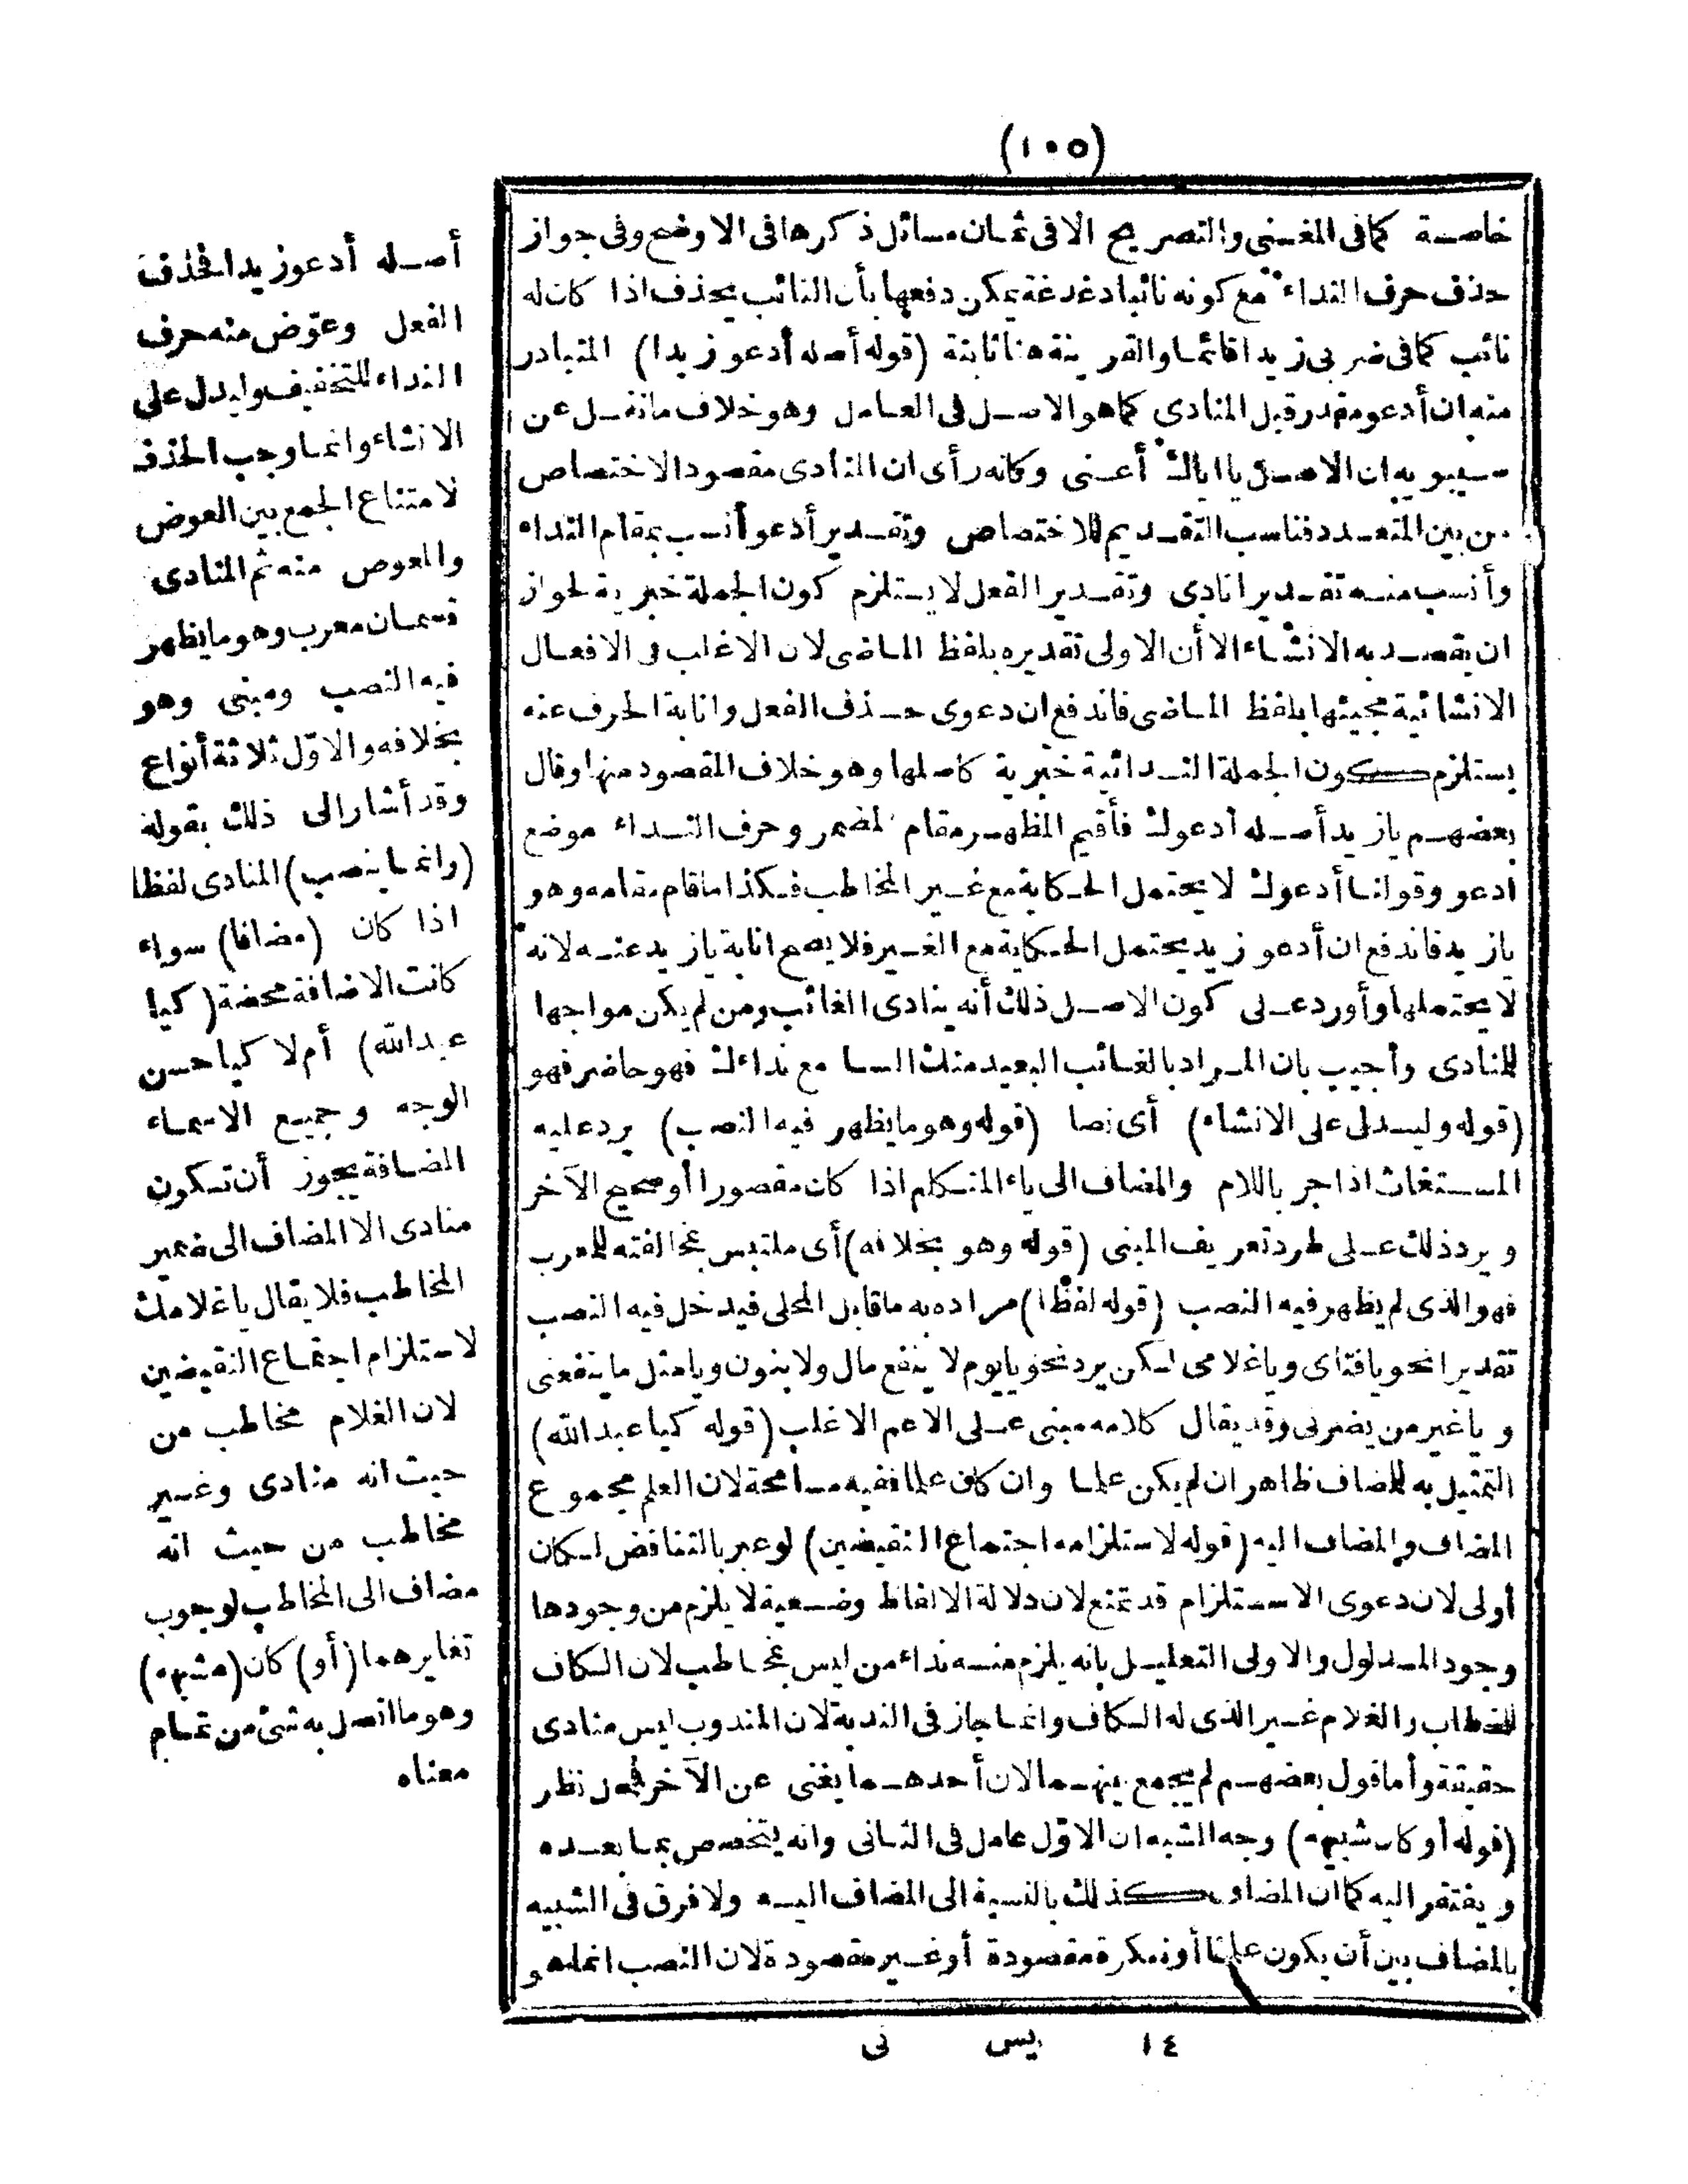 (١٠٥)
خاصة كما فى المغنى والتصريح الا فى ثمان مسائل ذكرها فى الاوضح وفى جواز
حذف حرف النداء مع كونه نائبا دغدغة يمكن دفعها بأن النائب يحذف اذا كان له
نائب كما فى ضربى زيدا قائما والقرينة هنا ثابتة (قوله أصله أدعو زيدا) المتبادر
منه ان أدعو مقدر قبل المنادى كما هو الاصل فى العامل وهو خلاف ما نقل عن
سيبويه ان الاصل يا اياك أعنى وكانه رأى ان المنادى مقصود الاختصاص
من بين المتعدد فناسب التقديم للاختصاص وتقدير أدعو أنسب بمقام النداء
وأنسب منه تقدير انادى وتقدير الفعل لا يستلزم كون الجملة خبرية لجواز
ان يقصد به الانشاء الا أن الاولى تقديره بلفظ الماضى لان الاغلب فى الافعال
الانشائية مجيئها بلفظ الماضى فاندفع ان دعوى حذف الفعل وانابة الحرف عنه
يستلزم كون الجملة الندائية خبرية كاصلها وهو خلاف المقصود منها وقال
بعضهم يا زيد أصله أدعوك فأقيم المظهر مقام المضمر وحرف النداء موضع
أدعو وقولنا أدعوك لا يحتمل الحكاية مع غير المخاطب فكذا ما قام مقامه وهو
يا زيد فاندفع ان أدعو زيد يحتمل الحكاية مع الغير فلا يصح انابة يا زيد عنه لانه
لا يحتملها وأورد على كون الاصل ذلك أنه ينادى الغائب ومن لم يكن مواجها
للمنادى وأجيب بان المراد بالغائب البعيد منك السا مع نداءك فهو حاضر فهو
(قوله وليدل على الانشاء) أى نصا (قوله وهو ما يظهر فيه النصب) يرد عليه
المستغاث اذا جر باللام والمضاف الى ياء المتكلم اذا كان مقصورا أو صحيح الآخر
ويرد ذلك على طرد تعريف المبنى (قوله وهو بخلافه) أى ملتبس بمخالفته للمعرب
فهو الذى لم يظهر فيه النصب (قوله لفظا) مراده به ما قابل المحلى فيدخل فيه النصب
تقديرا نحو يا فتاى ويا غلامى لكن يرد نحو يا يوم لا ينفع مال ولا بنون ويا مثل ما ينفعنى
ويا غير من يضرنى وقد يقال كلامه مبنى على الاعم الاغلب (قوله كيا عبد الله)
التمثيل به للمضاف ظاهر ان لم يكن علما وان كان علما ففيه مسامحة لان العلم مجموع
المضاف والمضاف اليه (قوله لاستلزامه اجتماع النقيضين) لو عبر بالتناقض لكان
أولى لان دعوى الاستلزام قد تمنع لان دلالة الالفاظ وضعية لا يلزم من وجودها
وجود المدلول والاولى التعليل بانه يلزم منه نداء من ليس بمخاطب لان الكاف
للخطاب والغلام غير الذى له الكاف وانما جاز فى الندبة لان المندوب ليس منادى
حقيقة وأما قول بعضهم لم يجمع بينهما لان أحدهما يغنى عن الآخر فمحل نظر
(قوله أو كان شبيهه) وجه الشبه ان الاول عامل فى الثانى وانه يتخصص بما بعده
ويفتقر اليه كما ان المضاف كذلك بالنسبة الى المضاف اليه ولا فرق فى الشبيه
بالمضاف بين أن يكون علما أو نكرة مقصودة أو غير مقصودة لان النصب انما هو
أصله أدعو زيدا فحذف
الفعل وعوّض منه حرف
النداء للتخفيف وليدل على
الانشاء وانما وجب الحذف
لامتناع الجمع بين العوض
والعوض منه ثم المنادى
قسمان معرب وهو ما يظهر
فيه النصب ومبنى وهو
بخلافه والاوّل ثلاثة أنواع
وقد أشار الى ذلك بقوله
(وانما ينصب) المنادى لفظا
اذا كان (مضافا) سواء
كانت الاضافة محضة (كيا
عبد الله) أم لا كيا حسن
الوجه وجميع الاسماء
المضافة يجوز أن تكون
منادى الا المضاف الى ضمير
المخاطب فلا يقال يا غلامك
لاستلزام اجتماع النقيضين
لان الغلام مخاطب من
حيث انه منادى وغير
مخاطب من حيث انه
مضاف الى المخاطب لوجوب
تغايرهما (أو) كان (مشبهه)
وهو ما اتصل به شئ من تمام
معناه
١٤ يس نى